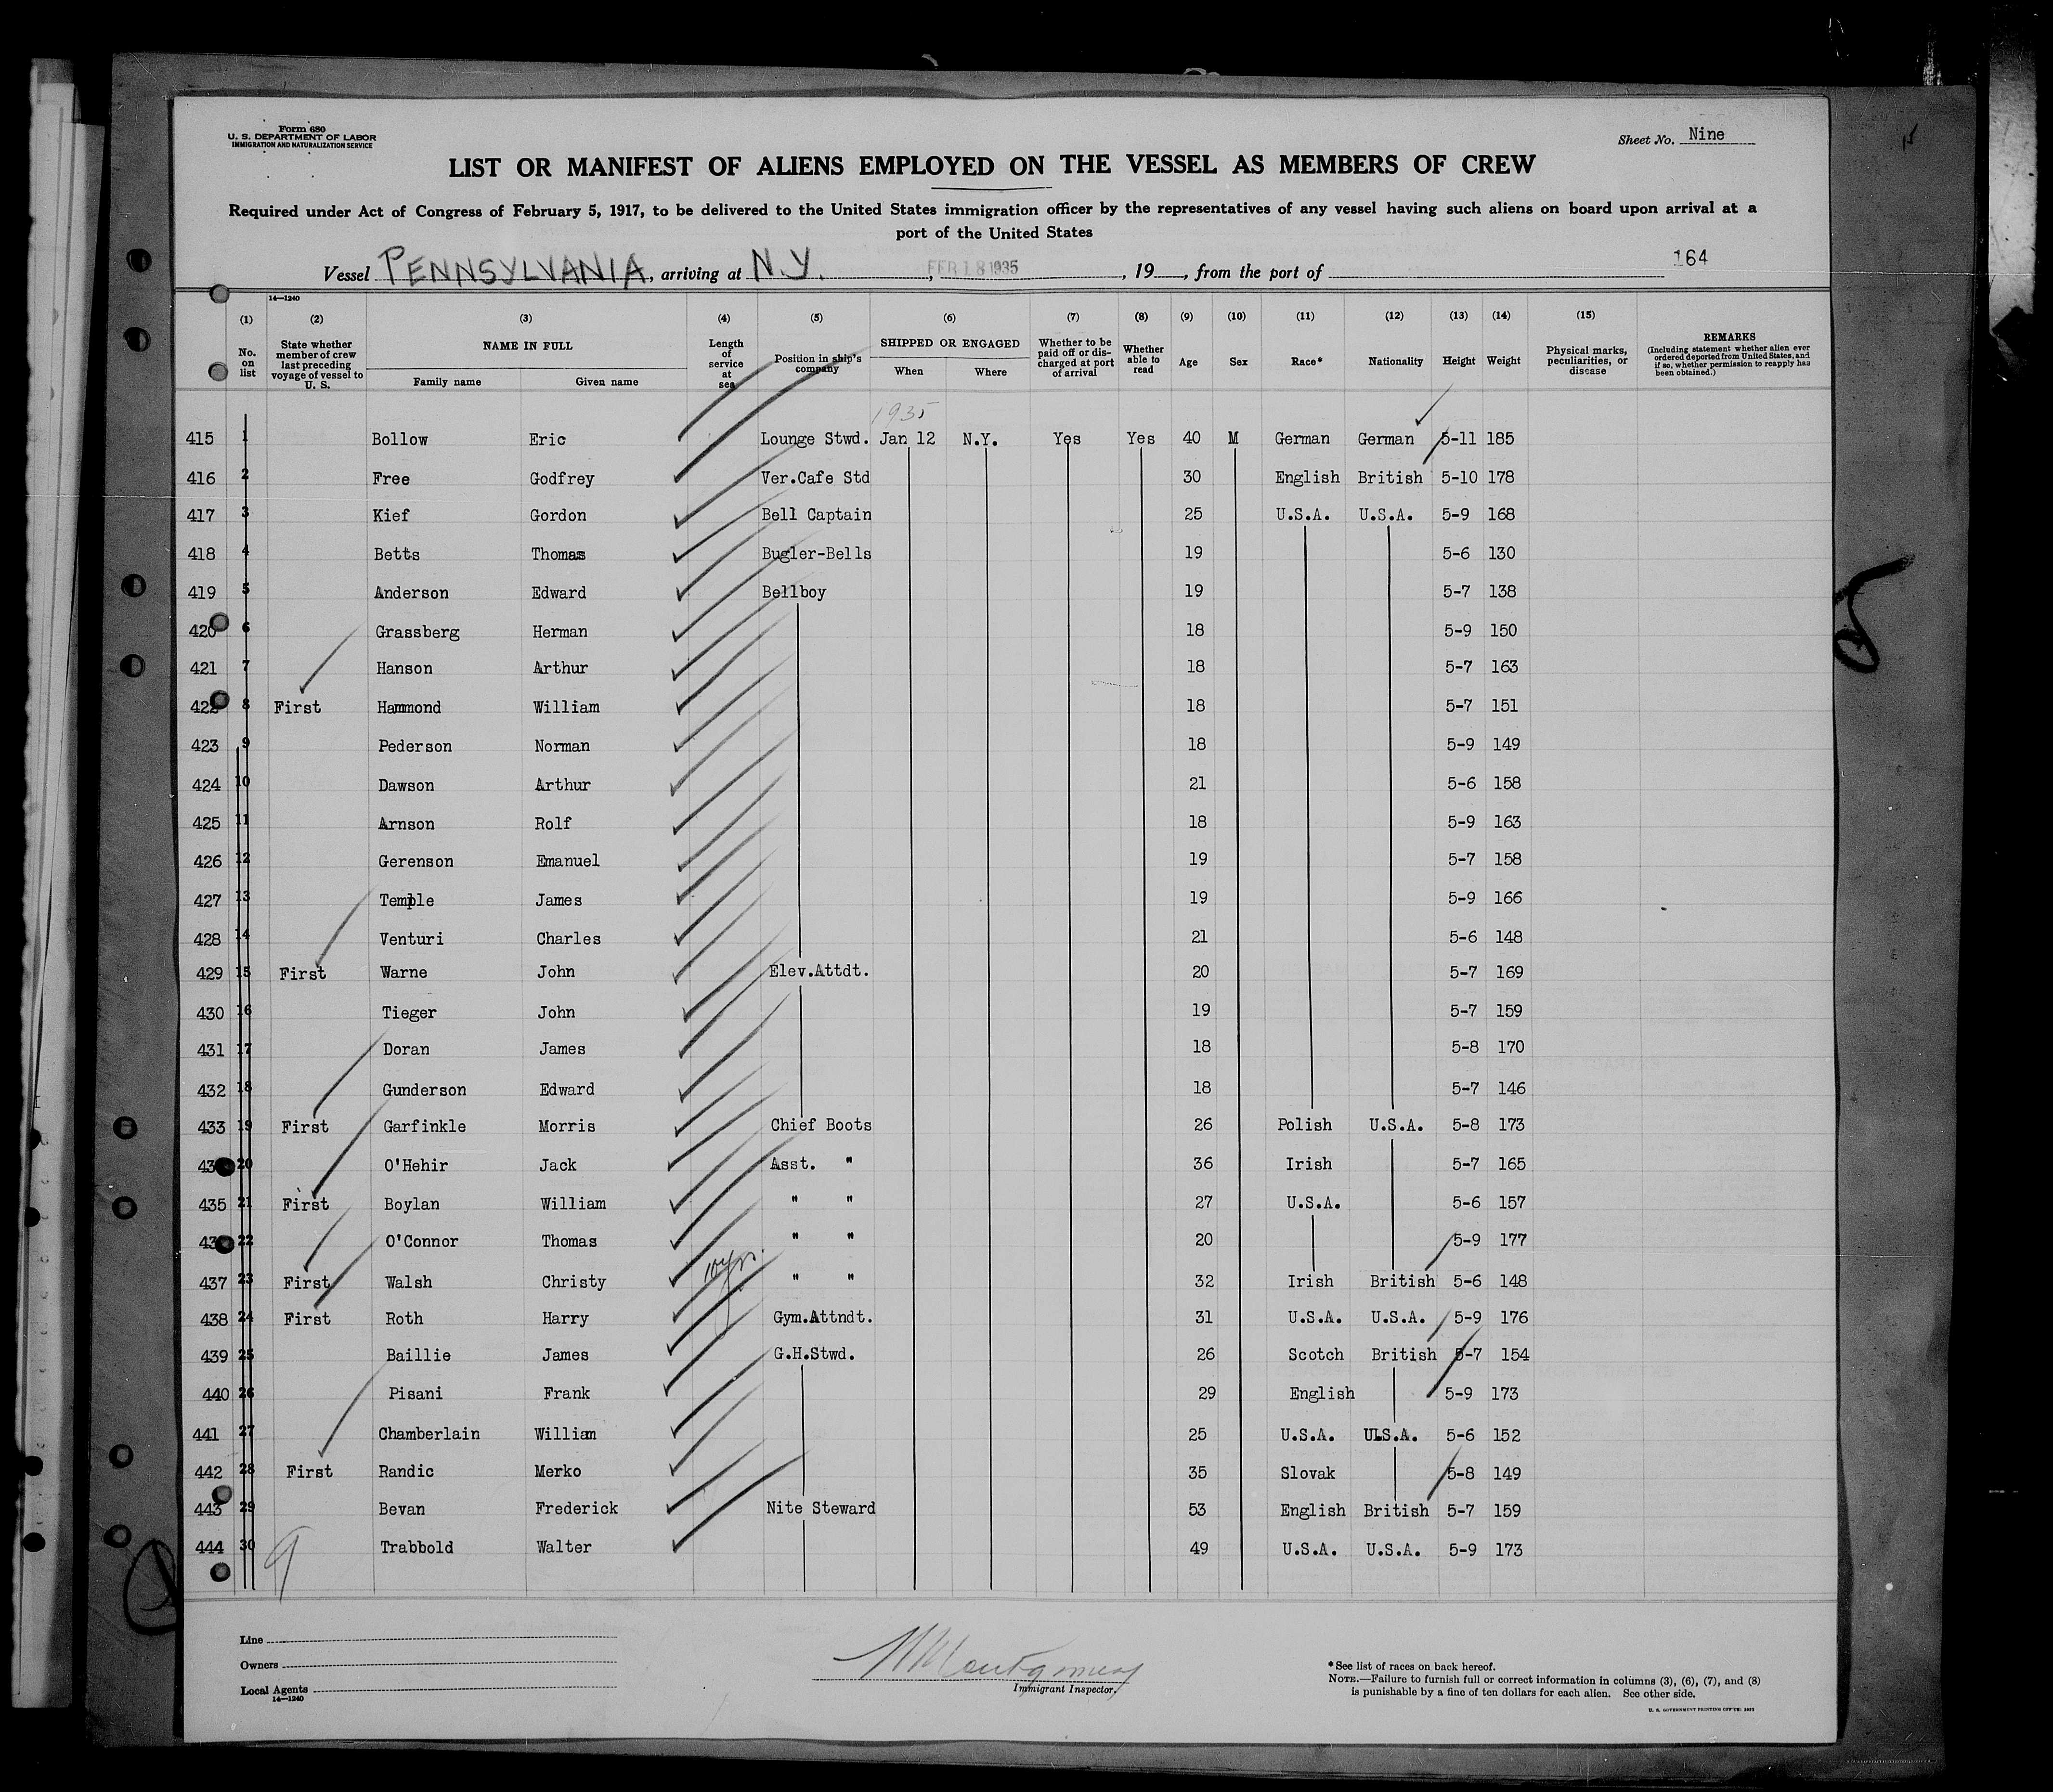 Form 680
U. S. DEPARTMENT OF LABOR
IMMIGRATION AND NATURALIZATION SERVICE
Sheet No. Nine
LIST OR MANIFEST OF ALIENS EMPLOYED ON THE VESSEL AS MEMBERS OF CREW
Required under Act of Congress of February 5, 1917, to be delivered to the United States immigration officer by the representatives of any vessel having such aliens on board upon arrival at a
port of the United States
164
Vessel PENNSYLVANIA, arriving at N.Y., FEB 18 1935, 19 , from the port of
14—1240
(1) (2) (3) (4) (5) (6) (7) (8) (9) (10) (11) (12) (13) (14) (15)
No. on list
State whether member of crew last preceding voyage of vessel to U. S.
NAME IN FULL
Family name Given name
Length of service at sea
Position in ship's company
SHIPPED OR ENGAGED
When Where
Whether to be paid off or discharged at port of arrival
Whether able to read
Age Sex Race* Nationality Height Weight
Physical marks, peculiarities, or disease
REMARKS
(Including statement whether alien ever ordered deported from United States, and if so, whether permission to reapply has been obtained.)
1935
415 1 Bollow Eric Lounge Stwd. Jan 12 N.Y. Yes Yes 40 M German German 5-11 185
416 2 Free Godfrey Ver.Cafe Std 30 English British 5-10 178
417 3 Kief Gordon Bell Captain 25 U.S.A. U.S.A. 5-9 168
418 4 Betts Thomas Bugler-Bells 19 5-6 130
419 5 Anderson Edward Bellboy 19 5-7 138
420 6 Grassberg Herman 18 5-9 150
421 7 Hanson Arthur 18 5-7 163
422 8 First Hammond William 18 5-7 151
423 9 Pederson Norman 18 5-9 149
424 10 Dawson Arthur 21 5-6 158
425 11 Arnson Rolf 18 5-9 163
426 12 Gerenson Emanuel 19 5-7 158
427 13 Temple James 19 5-9 166
428 14 Venturi Charles 21 5-6 148
429 15 First Warne John Elev.Attdt. 20 5-7 169
430 16 Tieger John 19 5-7 159
431 17 Doran James 18 5-8 170
432 18 Gunderson Edward 18 5-7 146
433 19 First Garfinkle Morris Chief Boots 26 Polish U.S.A. 5-8 173
43 20 O'Hehir Jack Asst. " 36 Irish 5-7 165
435 21 First Boylan William " " 27 U.S.A. 5-6 157
43 22 O'Connor Thomas " " 20 5-9 177
437 23 First Walsh Christy 10 yrs. " " 32 Irish British 5-6 148
438 24 First Roth Harry Gym.Attndt. 31 U.S.A. U.S.A. 5-9 176
439 25 Baillie James G.H.Stwd. 26 Scotch British 5-7 154
440 26 Pisani Frank 29 English 5-9 173
441 27 Chamberlain William 25 U.S.A. U.S.A. 5-6 152
442 28 First Randic Merko 35 Slovak 5-8 149
443 29 Bevan Frederick Nite Steward 53 English British 5-7 159
444 30 Trabbold Walter 49 U.S.A. U.S.A. 5-9 173
9
Line
Owners
Local Agents
14—1240
Montgomery
Immigrant Inspector.
*See list of races on back hereof.
NOTE.—Failure to furnish full or correct information in columns (3), (6), (7), and (8)
is punishable by a fine of ten dollars for each alien. See other side.